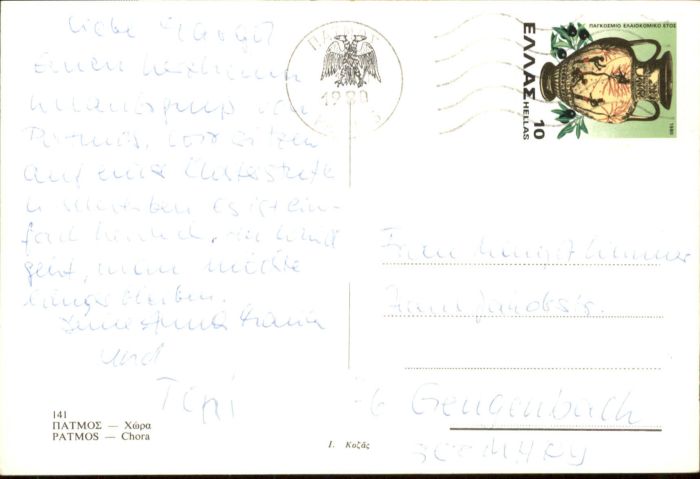 Liebe Margot
Einen herzlichen
Urlaubsgruß von
Patmos, wir sitzen
auf einer
u. schreiben es ist ein-
fach herrlich, der Wind
geht, man möchte
länger bleiben.
Deine Anna Maria
und
Toni
141
ΠΑΤΜΟΣ — Χώρα
PATMOS — Chora
Ι. Κοζάς
ΠΑΤΜΟΣ
1980
ΠΑΓΚΟΣΜΙΟ ΕΛΑΙΟΚΟΜΙΚΟ ΕΤΟΣ
ΕΛΛΑΣ
HELLAS
10
1980
Frau Margot
76 Gengenbach
GERMANY